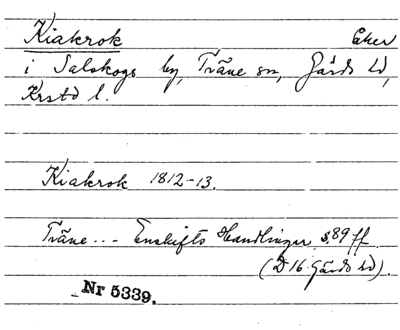 Kiakrok åker
i Salskogs by, Träne sn, Gärds hd,
Krstd l.
Kiakrok 1812-13.
Träne... Enskifts Handlingar s. 89 ff.
(D 16 Gärds hd).
Nr 5339.